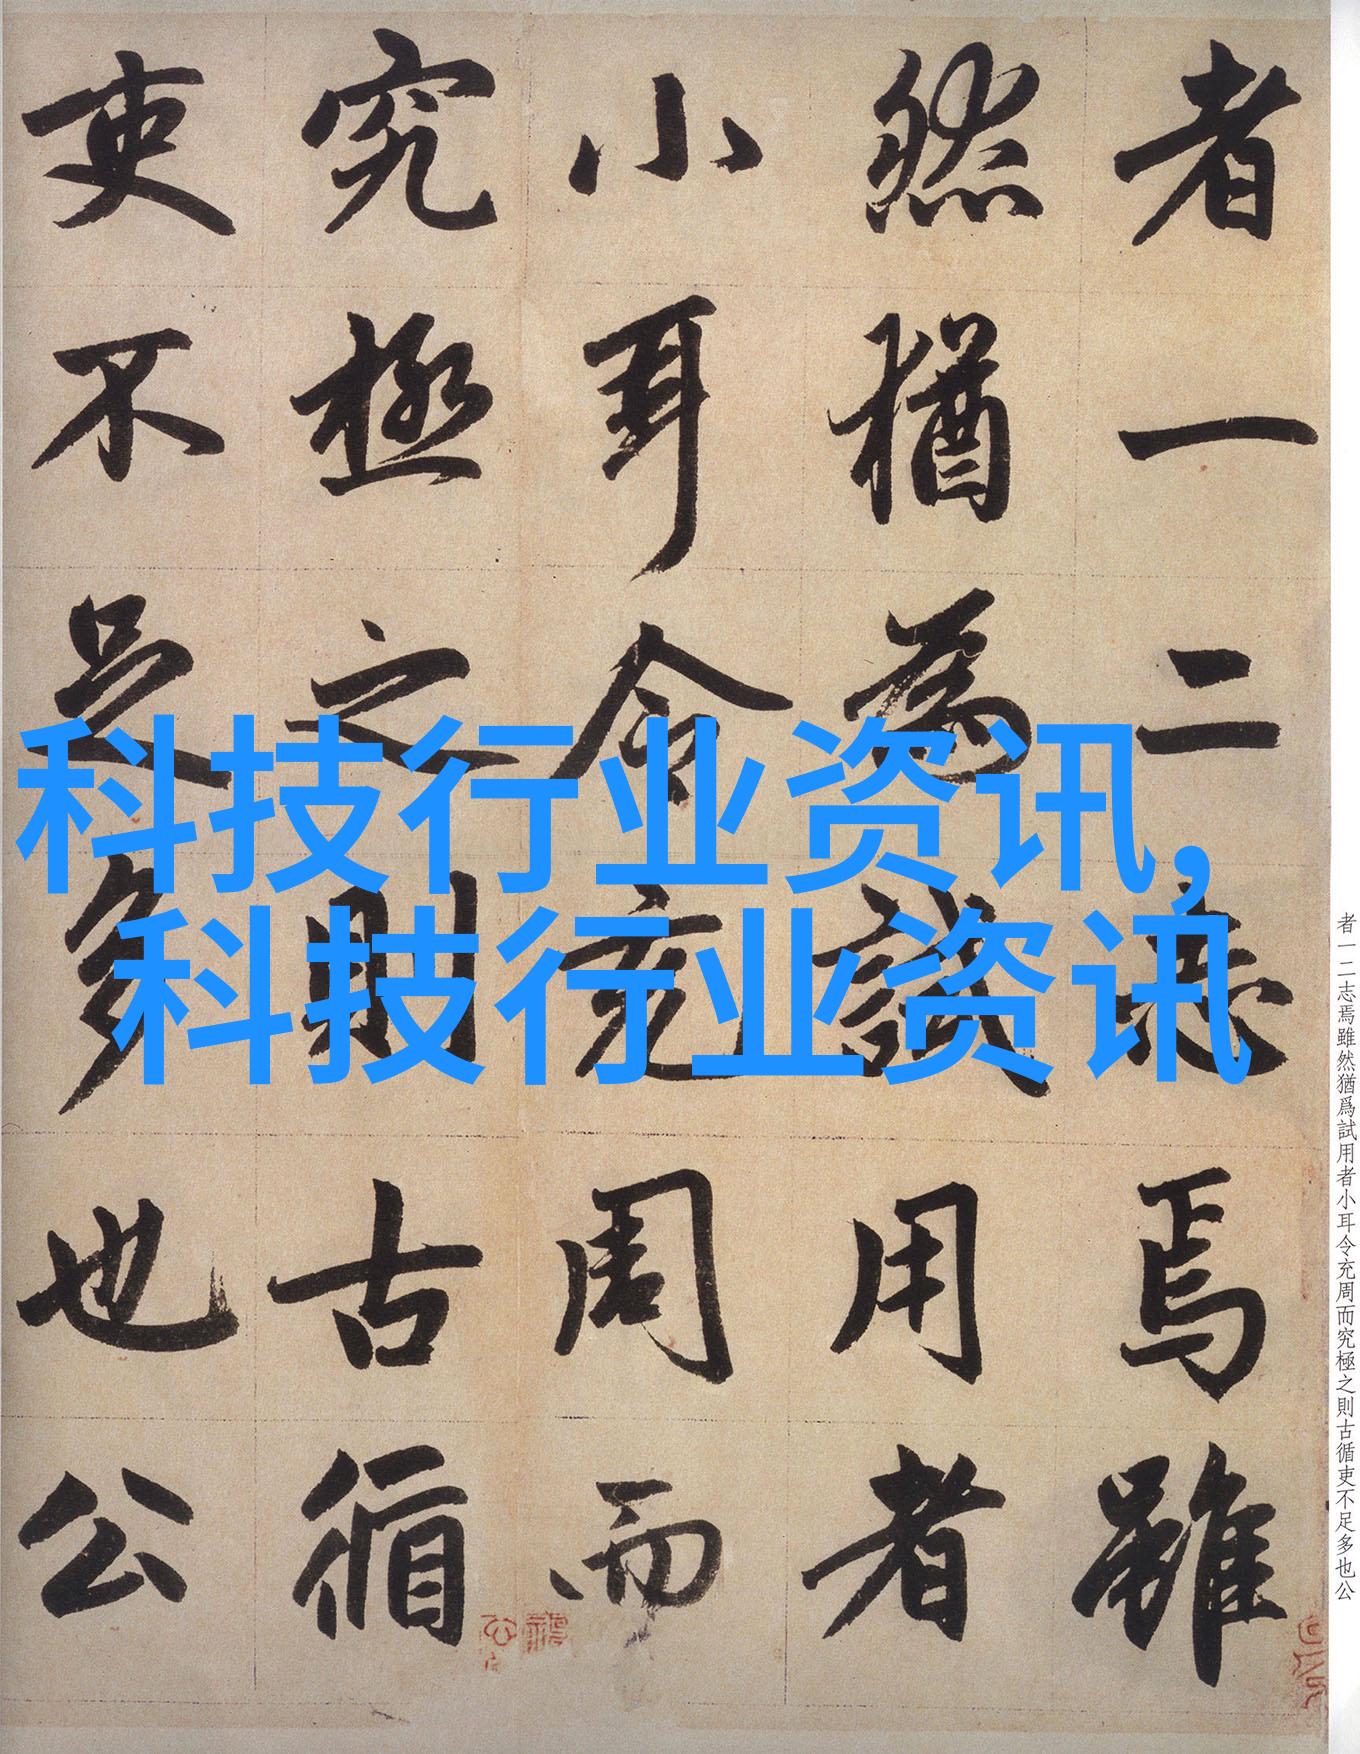 者一二志焉雖
然猶為試用者
小耳令充周而
究極之則古循
吏不足多也公
科技行业资讯,
科技行业资讯
者一二志焉雖然猶爲試用者小耳令充周而究極之則古循吏不足多也公